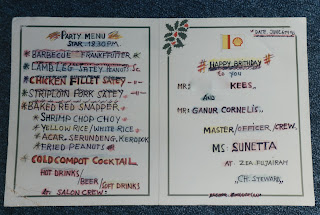 PARTY MENU
STAR: 18:30 P.M.
* BARBECUE FRANKFFUTTER
* LAMB LEG SATEY PEANUTS Sc
* CHICKEN FILLET SATEY -"-
* STRIPLOIN PORK SATEY -"-
* BAKED RED SNAPPER
* SHRIMP CHOP CHOY
* YELLOW RICE/WHITE RICE
* ACAR, SERUNDENG, KEROPOK
* FRIED PEANUTS
* COLD COMPOT COCKTAIL
HOT DRINKS/
/BEER/
/SOFT DRINKS
At SALON CREW:
HAPPY BIRTHDAY
to you
MR: KEES
AND
MR: GANUR CORNELIS.
MASTER/OFFICER/CREW.
MS: SUNETTA
AT ZEA PUJAIRAH
CH: STEWARD